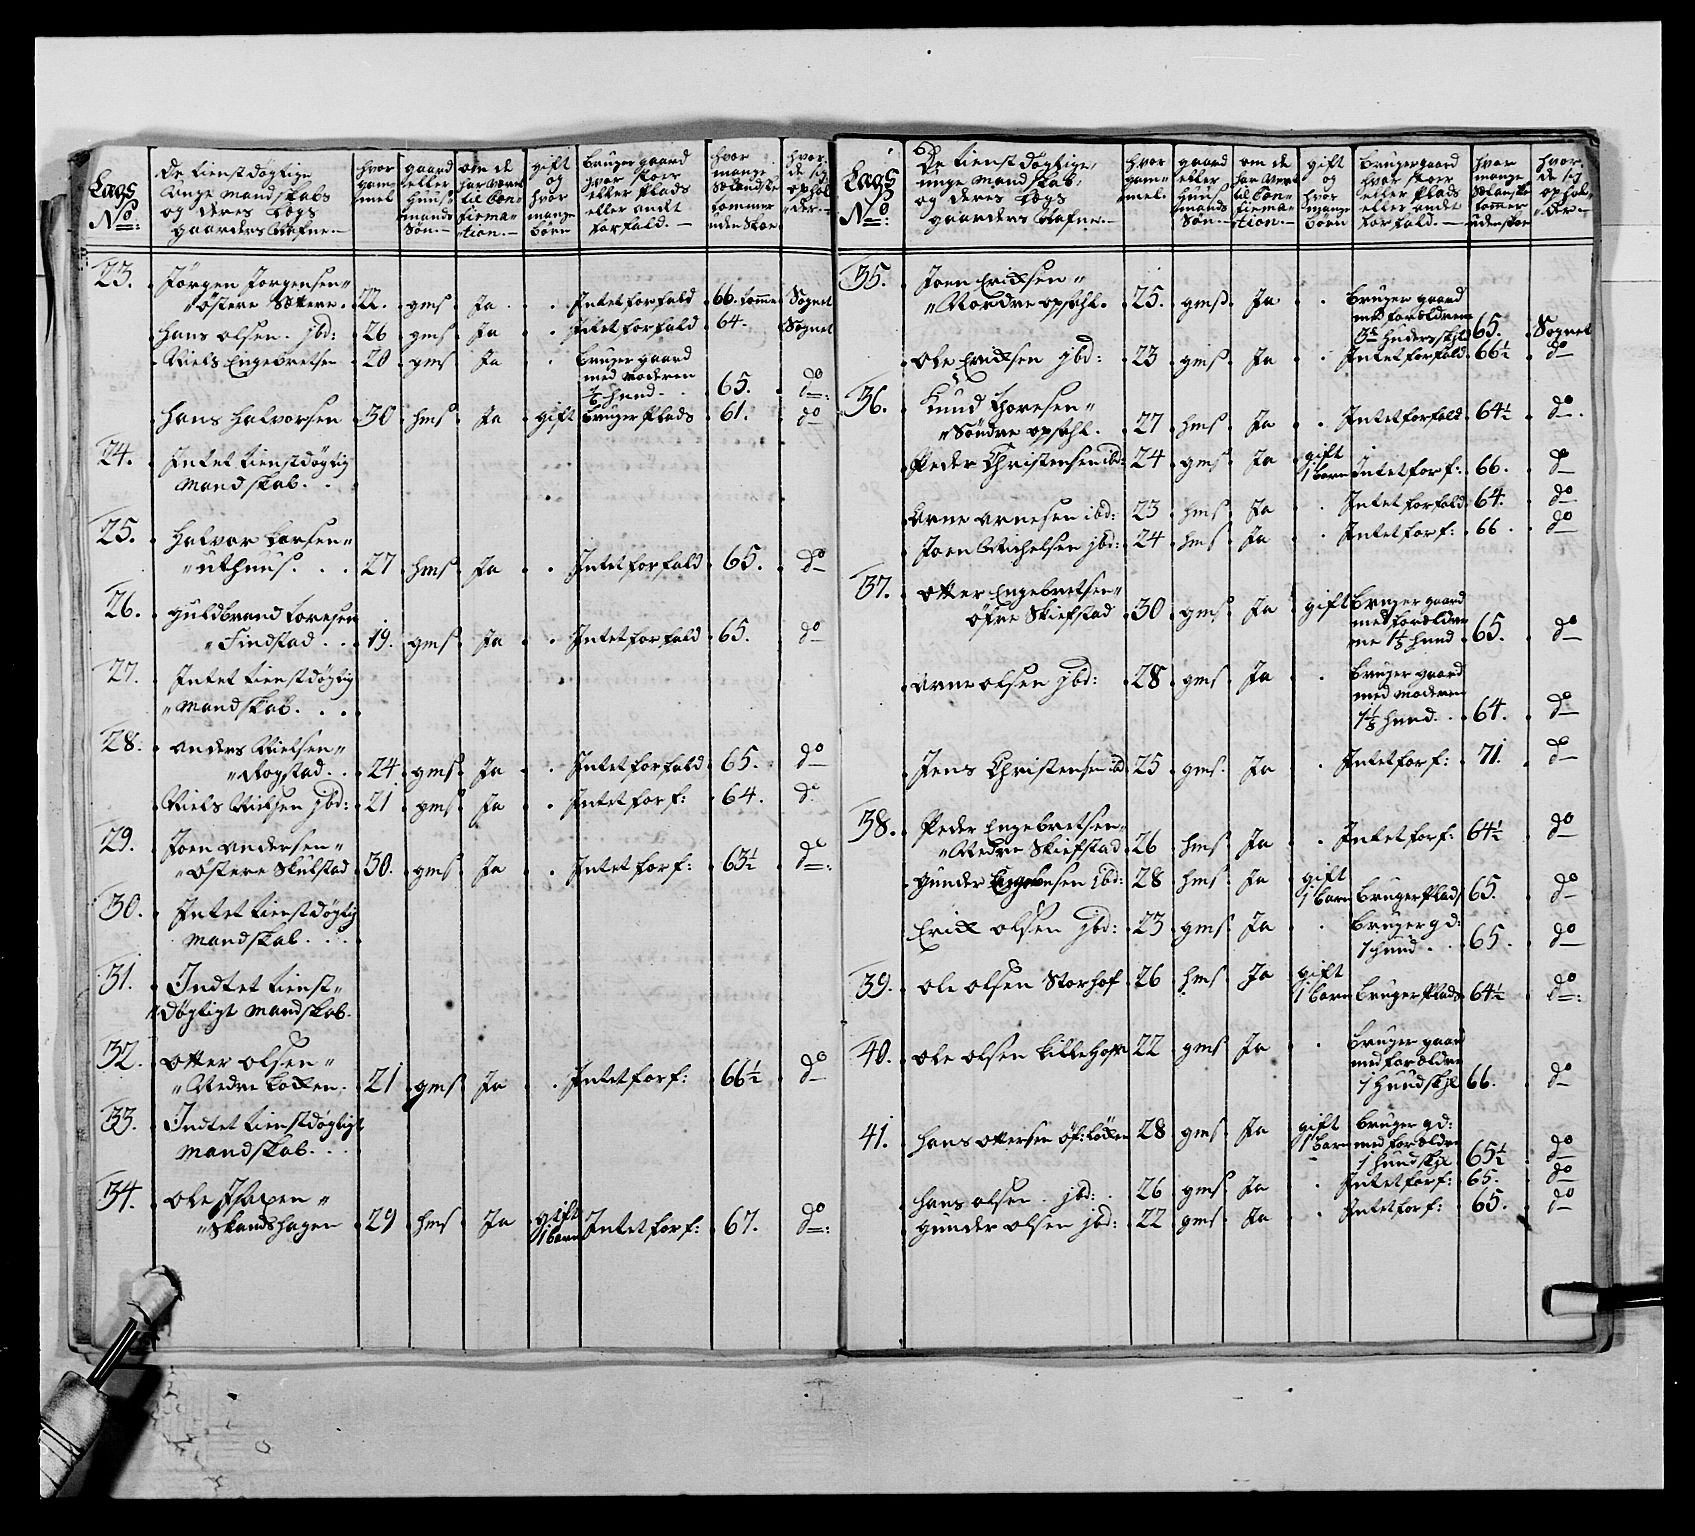 Laags No: | De tienstdøgtige unge mandskabs og deres Løgs gaarders Nafne. | hvor gam mel | gaard eller huus mands Søn. | om de har været til Con firma tion. | gift og hvor mange børn | bruger gaard hvor stoer eller Plads eller andt forfald. | hvor mange Sælandske tommer uden Skoe | hvor de sig ophol der.
23. Jørgen Jorgensen
Østere Sætere. 22. gms. Ja . . Intet forfald 66. tomme Sognet
Hans olsen. jbd: 26 gms. Ja . . Intet forfald 64. Sognet
Niels Engebretsen 20 gms Ja . . bruger gaard
med moderen
1/6 hund . 65. do
Hans Halvorsen 30 hms. Ja gift bruger Plads 61. do
24. Intet tienstdøgtig
mandskab. . .
25. Halvor Larsen
uthuus. . . 27 hms. Ja . . Intet forfald 65. do
26. guldbrand toresen
Findstad . . 19. gms. Ja . . Intet forfald 65. do
27. Intet tienstdøgtig
mandskab. . . .
28. anders Nielsen
Rogstad. . 24 gms. Ja . . Intet forfald 65. do
Niels Nielsen jbd: 21 gms Ja . . Intet forf: 64. do
29. Joen andersen
Østere Skulstad 30. gms Ja . . Intet forf: 63½ do
30. Intet tienstdøgtig
mandskab. . . .
31. Indtet tienst
døgtigt mandskab.
32. otter olsen
Nedre Løken. 21 gms Ja . . Intet forf: 66½ do
33. Indtet tienstdøgtigt
mandskab. . .
34. Ole
Skandshagen 29 hms Ja gift
1 barn Intet forf: 67. do
Laags No: | De tienstdøgtige unge mandskab. og deres Løgs gaarders Nafne. | hvor gam mel. | gaard eller Huus mands Søn. | om de har været til Con firma tion. | gift og hvor mange børn | bruger gaard hvor stoer eller Plads eller andt forfald. | hvor mange Sælanske tommer uden skoe | hvor de sig ophol der
35. Joen Ericksen
Nordre opsahl. 25. gms. Ja . . bruger gaard
med foreldrene
hunders skyld 65. Sognet
Ole Ericksen jbd: 23 gms. Ja . . Intet forfald 66½ do
36. Knud thoresen
Søndre opsahl. 27 hms. Ja . . Intet forfald 64½ do
Peder Christensen ibd: 24 gms. Ja gift
1 barn Intet forf: 66. do
Arne arnesen ibd: 23 hms. Ja . . Intet forfald 64. do
Joen Michelsen jbd: 24 hms Ja . . Intet forf: 66 . do
37. otter Engebretsen
øfre Skiefstad 30 gms. Ja gift bruger gaard
med foreldre
ne 1½ hund 65. do
Arne olsen jbd: 28 gms Ja . . bruger gaard
med moderen
hund . . 64. do
Jens Christensen ibd 25 gms. Ja . Intet forf: 71. do
38. Peder Engebretsen
Nedre Skiefstad 26 hms. Ja . . Intet forf: 64½ do
gunder jbd: 28 hms. Ja gift
1 barn bruger Plads 65. do
Erick olsen jbd: 23 gms. Ja . . bruger gd:
1 hund . . 65 . do
39. Ole olsen Storhof 26 hms Ja gift
1 barn bruger Plads 64½ do
40. Ole olsen Lillehofe 22 gms Ja . . bruger gaar
med foreldre
1 hund skyl 66. do
41. Hans ottersen øf: Løken 28 gms. Ja gift
1 barn bruger gd:
med foreldre
1 hund skyl 65½ do
Hans olsen . jbd: . 26 gms. Ja . Intet forf: 65. do
gunder olsen jbd: 22 gms. Ja . . Intet forf: 65. do